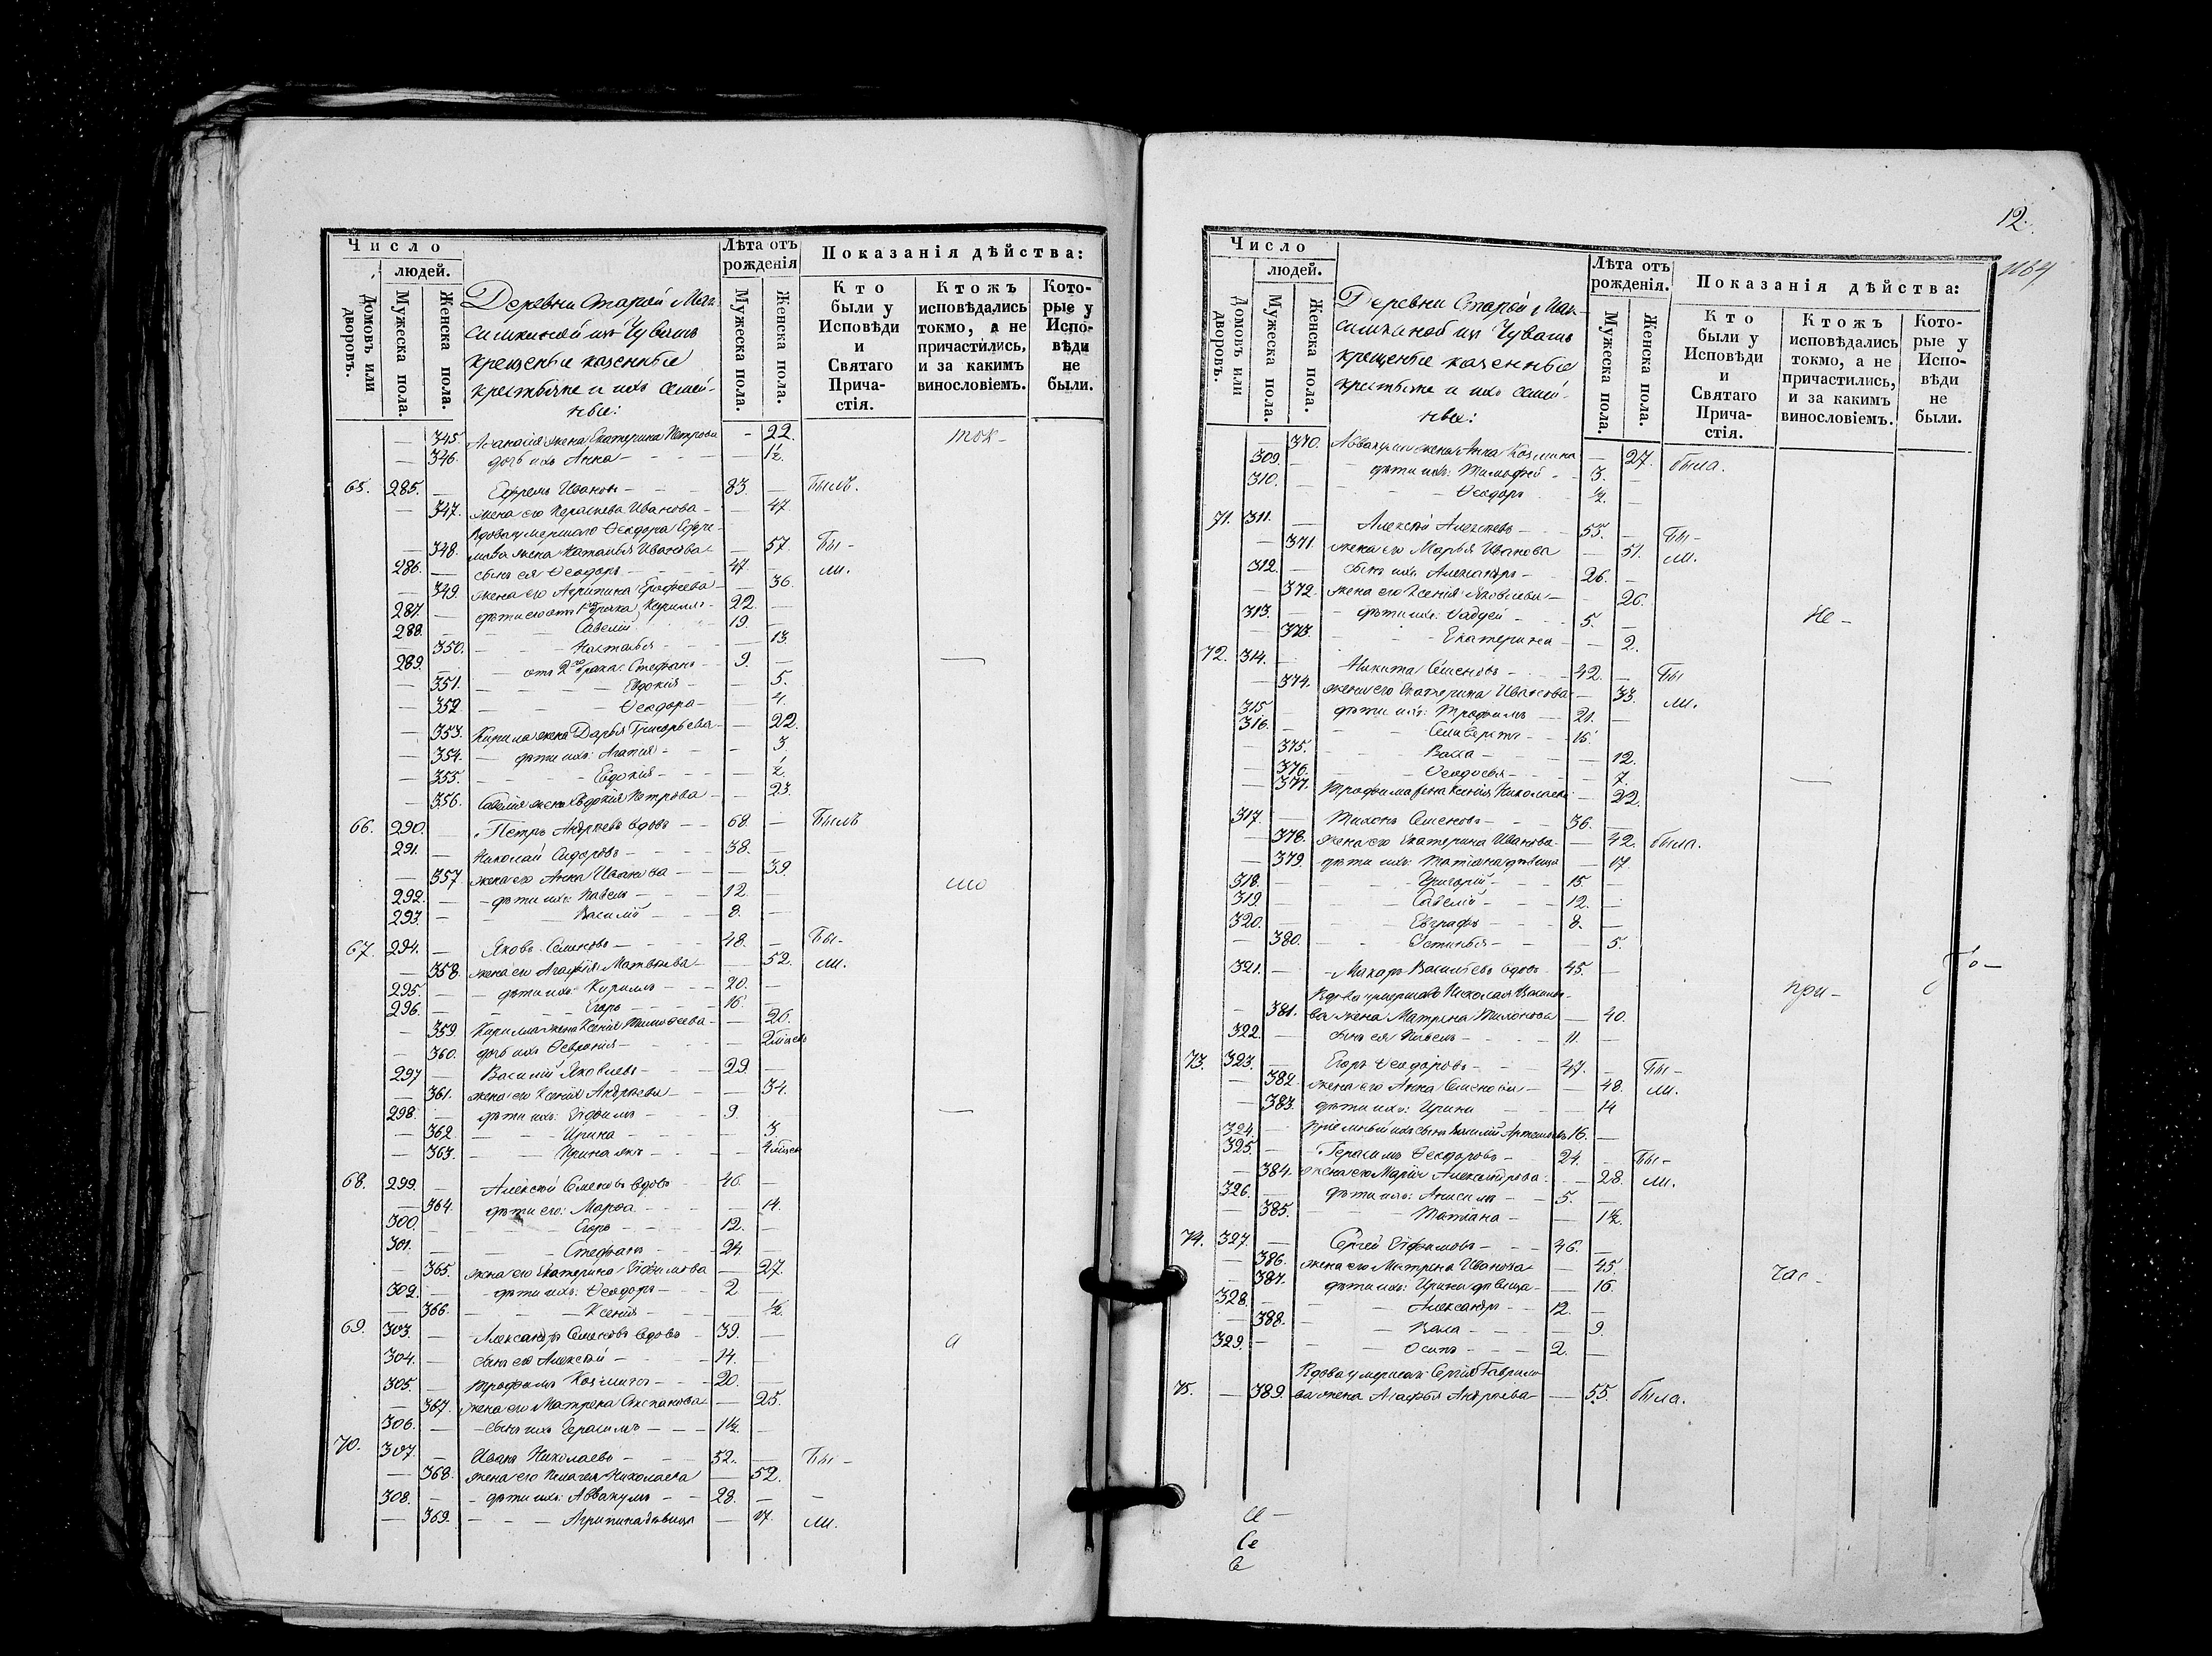 Число
людей.
Домовъ или дворовъ.
Мужеска пола.
Женска пола.
Деревни Старой Мак-
симкиной из Чувашъ
крещеные казенные
крестьяне и ихъ семей-
ные:
Лѣта отъ рожденія
Мужеска пола.
Женска пола.
Показанія дѣйства:
Кто были у Исповѣди и Святаго Причастія.
Ктожъ исповѣдались токмо, а не причастились, и за какимъ винословіемъ.
Которые у Исповѣди не были.
— 345. жена Екатерина Петрова - 22. ток-
— 346. дочь ихъ Анна — — 1½.
65. 285. — Ефремъ Ивановъ — 83. — Былъ.
— 347. жена его Иванова — — 47.
Вдова умершаго Ѳеодора Ефре-
— 348. мова жена Наталья Иванова — 57. Бы-
286. — сынъ ея Ѳеодоръ — 47. — ли.
— 349. жена его Агрипина Ерофеева — — 36.
287. — дѣти его отъ 1го брака, Кириллъ — 22. —
288. — Савелий 19. —
— 350. — Наталья — — 13.
289. — отъ 2го брака: Стефанъ — 9. — —
— 351. — Евдокия — — 5.
— 352. — Ѳеодора — — 4.
— 353. Кирила жена Дарья Григорьева — — 22.
— 354. — дѣти ихъ: Агапия — — 3
— 355. — Евдокия — — ½.
— 356. Савелия жена Евдокия Петрова — — 23.
66. 290. — Петръ Андреевъ вдовъ — 68. — Былъ
291. — Николай Сидоровъ — 38. —
— 357. жена его Анна Иванова — — 39.
292. — дѣти ихъ: Павелъ — 12. — мо
293. — Василий — 8. —
67. 294. — Яковъ Семеновъ — 48. — Бы-
— 358. жена его Агафия Матвѣева — 52. ли.
295. — дѣти ихъ: Кириллъ — 20. —
296. — Егоръ — 16. —
— 359. Кирила жена Ксения Тимофеева — — 26.
— 360. дочь ихъ Ѳеврония — — 2 мѣсец
297 — Василий Яковлевъ — 29. —
— 361. жена его Ксения Андреева — — 34.
298. — дѣти ихъ: Ефимъ — 9. — —
— 362. — Ирина — — 3
— 363. — — 4 мѣсец
68. 299. — Алексѣй Семеновъ вдовъ — 46. —
— 364. дѣти его: Марѳа — — 14.
300. — Егоръ — 12. —
301. — Стефанъ — 24. —
— 365. жена его Екатерина Ефимова — 27.
302. — дѣти ихъ: Ѳеодоръ — 2 —
— 366. — Ксения — — ½.
69. 303. — Александръ Семеновъ вдовъ — 39. — а
304. — сынъ его Алексѣй — 14. —
305. — Трофимъ Козминъ — 20. —
— 367. жена его Матрена Степанова — 25.
306. — сынъ ихъ Герасимъ — 1½. —
70. 307. — Иванъ Николаевъ — 52. — Бы-
— 368. жена его Пелагея Николаева — 52.
308. — дѣти ихъ: Аввакумъ — 28. — —
— 369. — Агрипина дѣвица — 17. ли.
12.
1164
Число
людей.
Домовъ или дворовъ.
Мужеска пола.
Женска пола.
Деревни Старой Мак-
симкиной из Чувашъ
крещеные казенные
крестьяне и ихъ семей-
ные:
Лѣта отъ рожденія.
Мужеска пола.
Женска пола.
Показанія дѣйства:
Кто были у Исповѣди и Святаго Причастія.
Ктожъ исповѣдались токмо, а не причастились, и за какимъ винословіемъ.
Которые у Исповѣди не были.
— 370. Аввакума жена Анна Козмина — 27. была.
309. — дѣти ихъ: Тимофей — 3. —
310. — Ѳеодоръ ½. —
71. 311. — Алексѣй Алексѣевъ — 55. — Бы-
— 371. жена его Марья Иванова — 51. ли.
312. — сынъ ихъ Александръ — 26. —
— 372. жена его Ксения Яковлева — — 26.
313. — дѣти ихъ: Фадей — 5. — Не-
— 373. — Екатерина — — 2.
72. 314. — Никита Семеновъ — 42. — Бы
— 374. жена его Екатерина Иванова — 33. ли.
315 — дѣти ихъ: Трофимъ — 21. —
316. — Селиверстъ — 15.
— 375. — Васса — — 12.
— 376. — Ѳеодосья — — 7. —
— 377. Трофима жена Ксения Николаева — 22.
317. — Тихонъ Семеновъ — 36. —
— 378. жена его Екатерина Иванова — 42. была.
— 379. дѣти ихъ: Татьяна дѣвица — 17.
318. — Григорий — 15. —
319. — Савелий — 12. —
320. — Евграфъ — 8. —
— 380. — Устинья — — 5.
321. — Макаръ Васильевъ вдовъ — 45. — при-
Вдова умершаго Николая Василье-
— 381. ва жена Матрена Тихонова — 40.
322. — сынъ ея Павелъ — 11. —
73. 323. — Егоръ Ѳеодоровъ — 47. — Бы-
— 382. жена его Анна Семенова — — 48. ли.
— 383. дѣти ихъ: Ирина — 14
324. — приемный ихъ сынъ Василий Артемьевъ 16. —
325. — Герасимъ Ѳеодоровъ — 24. — Бы-
— 384. жена его Мария Александрова — 28. ли.
326. — дѣти ихъ: Анисимъ — 5. —
— 385. — Татиана — — 1½.
74. 327. — Сергей Ефимовъ — 46. —
— 386. жена его Матрена Иванова — 45.
— 387. дѣти ихъ: Ирина дѣвица — 16. час-
328. — Александръ — 12. —
— 388. — — 9.
329. — Осипъ — 2. —
Вдова умершаго Сергия Гаврило-
75. — 389. ва жена Агафья Андреева — 55. была.